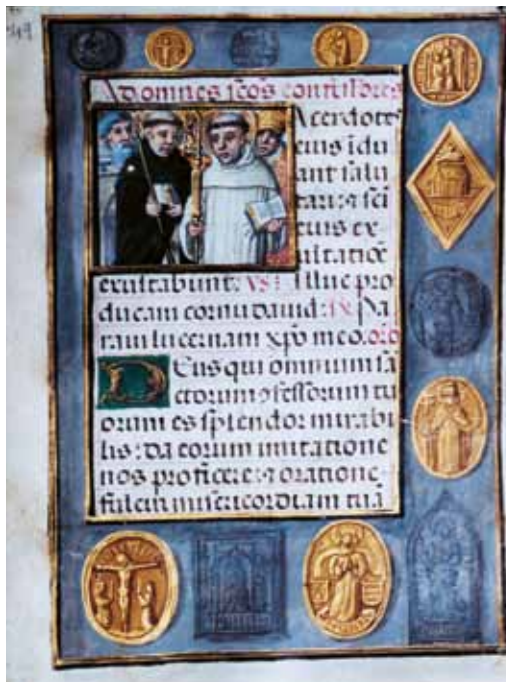 49
Ad omnes sc̄os confessores
Acerdotes
eius īdu
ant salu
tari: ⁊ sci
eius ex
ultatiōe
exultabunt. vs. Illuc pro
ducam cornu dauid: R. Pa
raui lucernam xp̄o meo. oro
Deus qui omnium sā
ctorum ⁊fessorum tu
orum es splendor mirabi
lis: da eorum imitatione
nos proficere: ⁊ oratione
fulciri misericordiam tuā